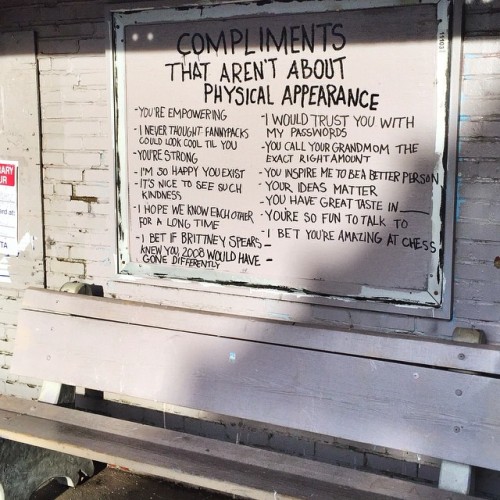 COMPLIMENTS
THAT AREN'T ABOUT
PHYSICAL APPEARANCE
-YOU'RE EMPOWERING
-I NEVER THOUGHT FANNYPACKS
COULD LOOK COOL TIL YOU
-YOU'RE STRONG
-I'M SO HAPPY YOU EXIST
-IT'S NICE TO SEE SUCH
KINDNESS
-I HOPE WE KNOW EACH OTHER
FOR A LONG TIME
-I BET IF BRITTNEY SPEARS
KNEW YOU, 2008 WOULD HAVE
GONE DIFFERENTLY
-I WOULD TRUST YOU WITH
MY PASSWORDS
-YOU CALL YOUR GRANDMOM THE
EXACT RIGHT AMOUNT
-YOU INSPIRE ME TO BE A BETTER PERSON
-YOUR IDEAS MATTER
-YOU HAVE GREAT TASTE IN____
-YOU'RE SO FUN TO TALK TO
-I BET YOU'RE AMAZING AT CHESS
-
-